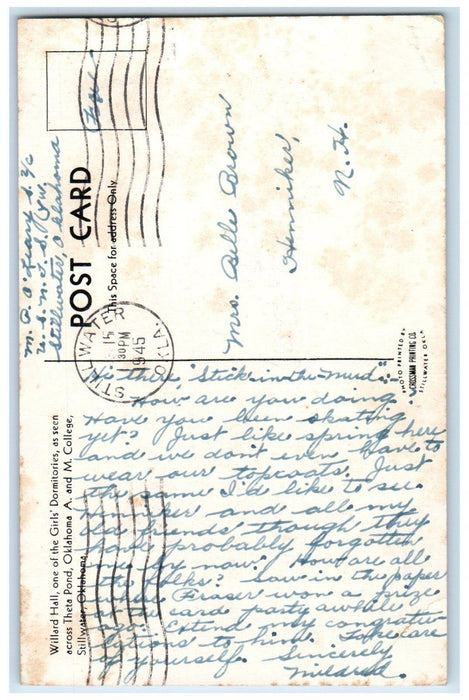 Willard Hall, one of the Girls' Dormitories, as seen
across Theta Pond, Oklahoma A. and M. College,
Stillwater, Oklahoma.
Hi there "Stick in the Mud".
How are you doing
Have you been skating
yet? Just like spring here
and we don't even have to
wear our topcoats. Just
the same I'd like to see
and all my
friends though they
have probably forgotten
by now. How are all
the folks? Saw in the paper
where Fraser won a prize
card party awhile
ago. Extend my congratu-
lations to him. Take care
of yourself. Sincerely,
Mildred.
M. A. O'Leary S. 2/c
U. S. N. T. S. (Y)
Stillwater, Oklahoma
Free
POST CARD
This Space for address Only
STILLWATER
15
30PM
1945
OKLA.
Mrs. Belle Brown
Henniker,
N. H.
PHOTO PRINTED By
CROSSMAN PRINTING CO.
STILLWATER OKLA.